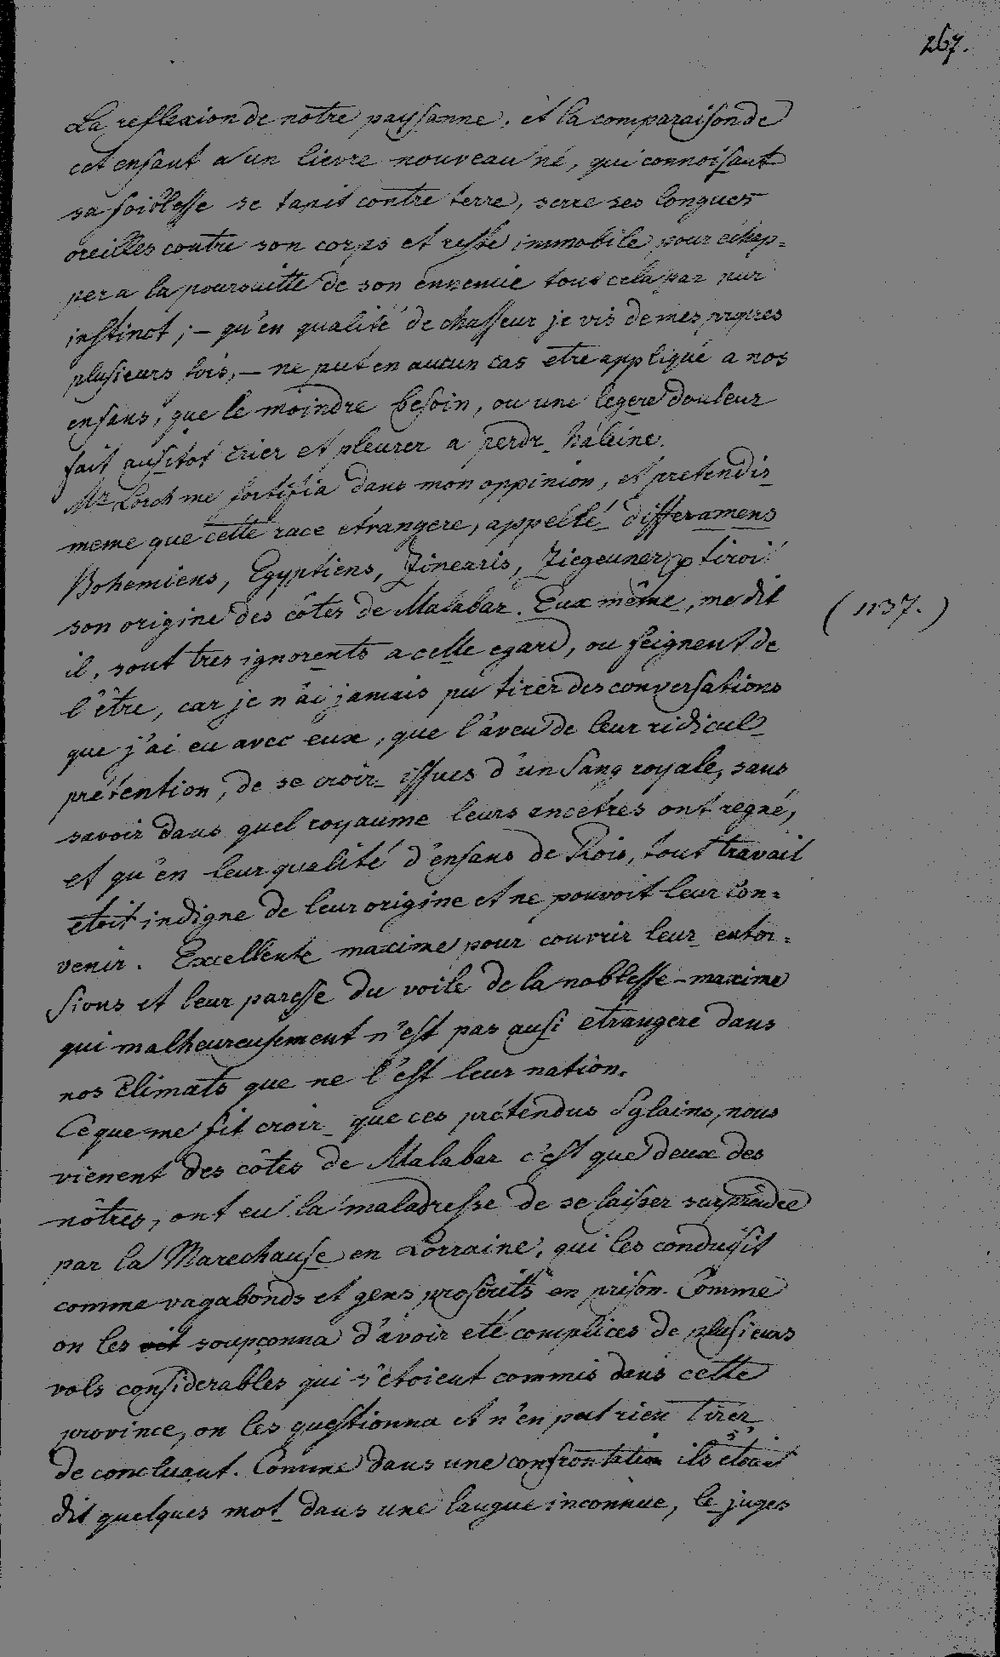 267.
La reflexion de notre paysanne, et la comparaison de
cet enfant a un lievre nouveau né, qui connoisant
sa foiblesse se tapit contre terre, serre ses longues
oreilles contre son corps et reste immobile pour échap=
per a la poursuitte de son ennemie tout cela par pur
instinct; – qu'en qualité de chasseur je vis de mes propres
plusieurs fois, – ne put en aucun cas etre appliqué a nos
enfans, que le moindre besoin, ou une legere douleur
fait ausitot crier et pleurer a perdr_ háleine.
Mr Lorch me fortifia dans mon oppinion, et pretendis
meme que cette race etrangere, appellé differamens
Bohemiens, Egyptiens, Zinearis, Ziegeuner tiroi
son origine des côtes de Malabar. Eux même, me dit
(1137.)
il, sont tres ignorents a celle egard, ou feignent de
l'être, car je n'ai jamais pu tirer des conversations
que j'ai eu avec eux, que l'aveu de leur ridicul_
prétention, de se croir_ issues d'un sang royale, sans
savoir dans quel royaume leurs ancetres ont regné,
et qu'en leur qualité d'enfans de Rois, tout travail
etoit indigne de leur origine et ne pouvoit leur con=
venir. Excellente maxime pour couvrir leur extor=
sions et leur paresse du voile de la noblesse – maxime
qui malheureusement n'est pas ausi etrangere dans
nos climats que ne l'est leur nation.
Ce que me fit croir_ que ces prétendus Sglains, nous
vienent des côtes de Malabar c'est que deux des
nôtres, ont eu la maladresse de se laiser surprendre
par la Marechause en Lorraine, qui les condusit
comme vagabonds et gens proscrits en prison. Comme
on les soupçonna d'avoir eté complices de plusieurs
vols considerables qui s'étoient commis dans cette
province, on les questionna et n'en put rien tirer
de concluant. Comme dans une confrontation ils s'étoient
dit quelques mot_ dans une langue inconnue, le juges